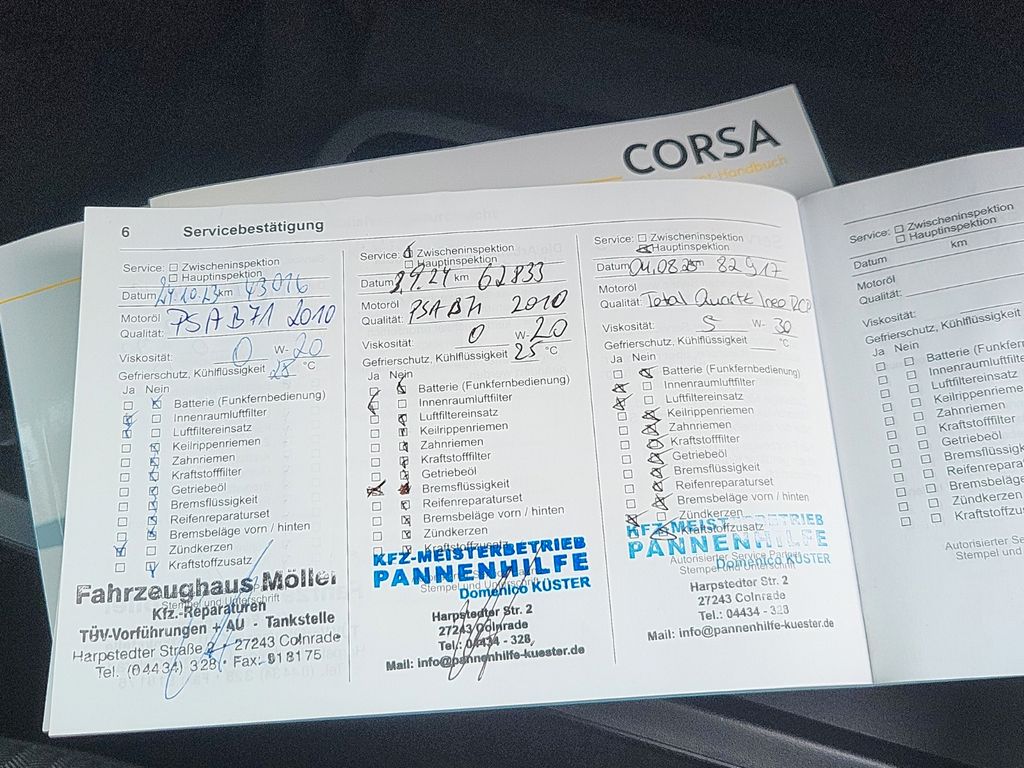 CORSA
6 Servicebestätigung
Service: Zwischeninspektion
Hauptinspektion
Datum 24.10.23 km 43016
Motoröl
Qualität: PSA B71 2010
Viskosität: 0 W- 20
Gefrierschutz, Kühlflüssigkeit °C
Ja Nein
Batterie (Funkfernbedienung)
Innenraumluftfilter
Luftfiltereinsatz
Keilrippenriemen
Zahnriemen
Kraftstofffilter
Getriebeöl
Bremsflüssigkeit
Reifenreparaturset
Bremsbeläge vorn / hinten
Zündkerzen
Kraftstoffzusatz
Fahrzeughaus Möller
Stempel und Unterschrift
Kfz.-Reparaturen
TÜV-Vorführungen + AU - Tankstelle
Harpstedter Straße 2 · 27243 Colnrade
Tel. (04434) 328 · Fax: 918175
Service: Zwischeninspektion
Hauptinspektion
Datum km 62833
Motoröl
Qualität: PSA B71 2010
Viskosität: 0 W- 20
Gefrierschutz, Kühlflüssigkeit 25 °C
Ja Nein
Batterie (Funkfernbedienung)
Innenraumluftfilter
Luftfiltereinsatz
Keilrippenriemen
Zahnriemen
Kraftstofffilter
Getriebeöl
Bremsflüssigkeit
Reifenreparaturset
Bremsbeläge vorn / hinten
Zündkerzen
Kraftstoffzusatz
KFZ-MEISTERBETRIEB
PANNENHILFE
Stempel und Unterschrift
Domenico KÜSTER
Harpstedter Str. 2
27243 Colnrade
Tel.: 04434 - 328
Mail: info@pannenhilfe-kuester.de
Service: Zwischeninspektion
Hauptinspektion
Datum 04.08.25 km 82917
Motoröl
Qualität: Total Quartz Ineo RCP
Viskosität: 5 W- 30
Gefrierschutz, Kühlflüssigkeit °C
Ja Nein
Batterie (Funkfernbedienung)
Innenraumluftfilter
Luftfiltereinsatz
Keilrippenriemen
Zahnriemen
Kraftstofffilter
Getriebeöl
Bremsflüssigkeit
Reifenreparaturset
Bremsbeläge vorn / hinten
Zündkerzen
Kraftstoffzusatz
KFZ-MEISTERBETRIEB
PANNENHILFE
Autorisierter Service Partner
Stempel und Unterschrift
Domenico KÜSTER
Harpstedter Str. 2
27243 Colnrade
Tel.: 04434 - 328
Mail: info@pannenhilfe-kuester.de
Service: Zwischeninspektion
Hauptinspektion
Datum km
Motoröl
Qualität:
Viskosität:
Gefrierschutz, Kühlflüssigkeit
Ja Nein
Batterie (Funkfern
Innenraumluftfilter
Luftfiltereinsatz
Keilrippenriemen
Zahnriemen
Kraftstofffilter
Getriebeöl
Bremsflüssig
Reifenreparat
Bremsbeläge
Zündkerzen
Kraftstoffzus
Autorisierter
Stempel und